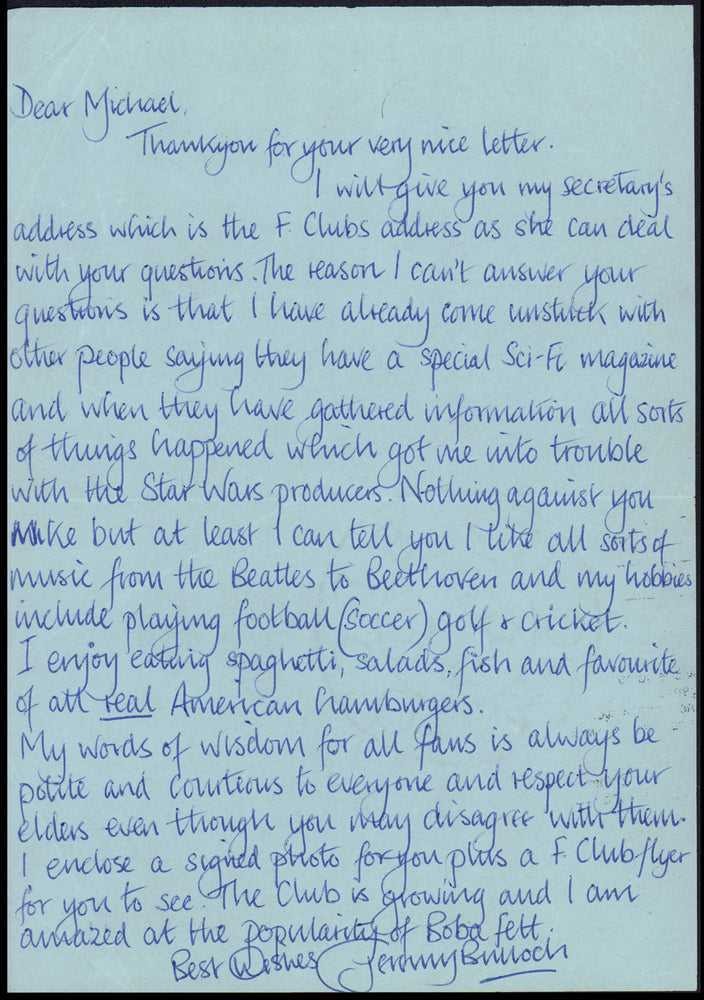 Dear Michael,
Thankyou for your very nice letter.
I will give you my secretary's
address which is the F. Clubs address as she can deal
with your questions. The reason I can't answer your
questions is that I have already come unstuck with
other people saying they have a special Sci-Fi magazine
and when they have gathered information all sorts
of things happened which got me into trouble
with the Star Wars producers. Nothing against you
Mike but at least I can tell you I like all sorts of
music from the Beatles to Beethoven and my hobbies
include playing football (Soccer) golf & cricket.
I enjoy eating spaghetti, salads, fish and favourite
of all real American hamburgers.
My words of wisdom for all fans is always be
polite and courteous to everyone and respect your
elders even though you may disagree with them.
I enclose a signed photo for you plus a F. Club flyer
for you to see. The Club is growing and I am
amazed at the popularity of Boba fett.
Best Wishes Jeremy Bulloch